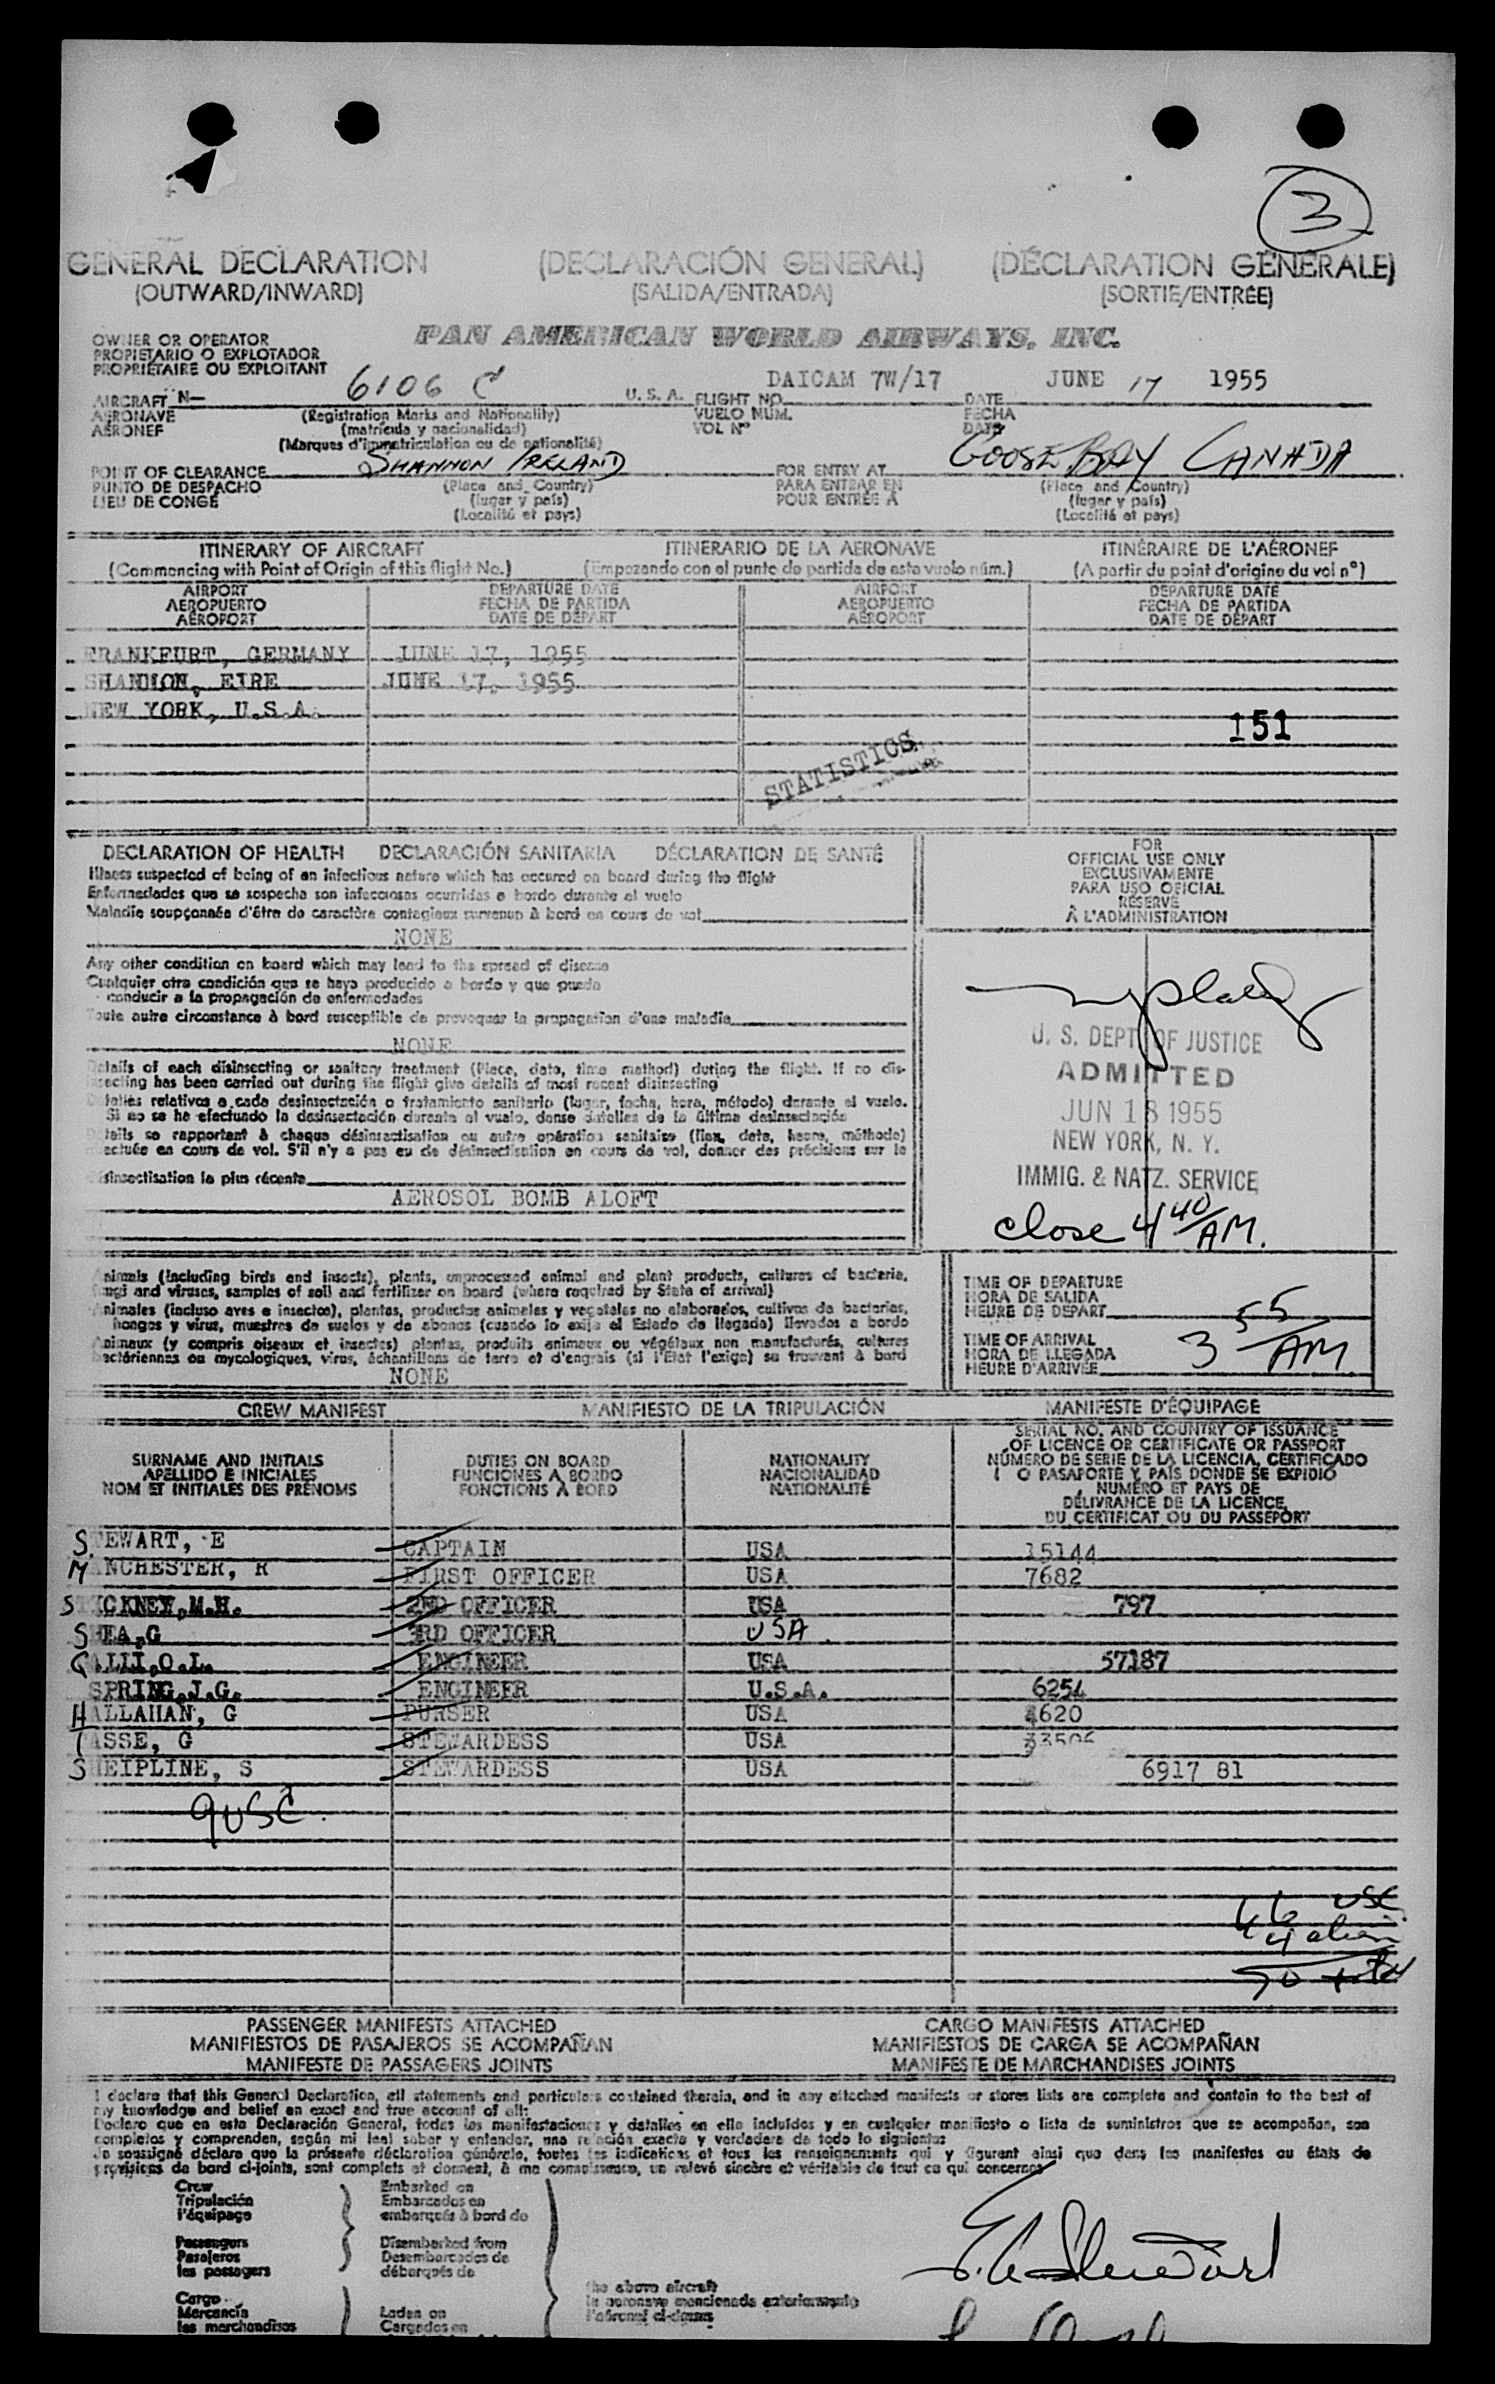 3
GENERAL DECLARATION (DECLARACIÓN GENERAL) (DÉCLARATION GÉNÉRALE)
(OUTWARD/INWARD) (SALIDA/ENTRADA) (SORTIE/ENTRÉE)
OWNER OR OPERATOR PAN AMERICAN WORLD AIRWAYS, INC.
PROPIETARIO O EXPLOTADOR
PROPRIÉTAIRE OU EXPLOITANT
AIRCRAFT N— 6106 C U. S. A. FLIGHT NO. DAICAM 7W/17 DATE JUNE 17 1955
AERONAVE (Registration Marks and Nationality) VUELO NÚM. FECHA
AÉRONEF (matrícula y nacionalidad) VOL Nº DATE
(Marques d'immatriculation ou de nationalité)
POINT OF CLEARANCE SHANNON IRELAND FOR ENTRY AT GOOSE BAY CANADA
PUNTO DE DESPACHO (Place and Country) PARA ENTRAR EN (Place and Country)
LIEU DE CONGÉ (lugar y país) POUR ENTRÉE À (lugar y país)
(Localité et pays) (Localité et pays)
ITINERARY OF AIRCRAFT ITINERARIO DE LA AERONAVE ITINÉRAIRE DE L'AÉRONEF
(Commencing with Point of Origin of this flight No.) (Empezando con el punto de partida de este vuelo núm.) (A partir du point d'origine du vol nº)
AIRPORT DEPARTURE DATE AIRPORT DEPARTURE DATE
AEROPUERTO FECHA DE PARTIDA AEROPUERTO FECHA DE PARTIDA
AÉROPORT DATE DE DÉPART AÉROPORT DATE DE DÉPART
FRANKFURT, GERMANY JUNE 17, 1955
SHANNON, EIRE JUNE 17, 1955
NEW YORK, U.S.A.
151
STATISTICS
DECLARATION OF HEALTH DECLARACIÓN SANITARIA DÉCLARATION DE SANTÉ
Illness suspected of being of an infectious nature which has occured on board during the flight
Enfermedades que se sospecha son infecciosas ocurridas a bordo durante el vuelo
Maladie soupçonnée d'être de caractère contagieux survenue à bord en cours de vol
NONE
Any other condition on board which may lead to the spread of disease
Cualquier otra condición que se haya producido a bordo y que pueda
conducir a la propagación de enfermedades
Toute autre circonstance à bord susceptible de provoquer la propagation d'une maladie
NONE
Details of each disinsecting or sanitary treatment (Place, date, time method) during the flight. If no dis-
insecting has been carried out during the flight give details of most recent disinsecting
Detalles relativos a cada desinsectación o tratamiento sanitario (lugar, fecha, hora, método) durante el vuelo.
Si no se ha efectuado la desinsectación durante el vuelo, dense detalles de la última desinsectación
Détails se rapportant à chaque désinsectisation ou autre opération sanitaire (lieu, date, heure, méthode)
effectuée en cours de vol. S'il n'y a pas eu de désinsectisation en cours de vol, donner des précisions sur la
désinsectisation la plus récente
AEROSOL BOMB ALOFT
FOR
OFFICIAL USE ONLY
EXCLUSIVAMENTE
PARA USO OFICIAL
RÉSERVÉ
À L'ADMINISTRATION
U. S. DEPT OF JUSTICE
ADMITTED
JUN 18 1955
NEW YORK, N. Y.
IMMIG. & NATZ. SERVICE
close 4 40 AM.
Animals (including birds and insects), plants, unprocessed animal and plant products, cultures of bacteria,
fungi and viruses, samples of soil and fertilizer on board (where required by State of arrival)
Animales (incluso aves e insectos), plantas, productos animales y vegetales no elaborados, cultivos de bacterias,
hongos y virus, muestras de suelos y de abonos (cuando lo exija el Estado de llegada) llevados a bordo
Animaux (y compris oiseaux et insectes) plantes, produits animaux ou végétaux non manufacturés, cultures
bactériennes ou mycologiques, virus, échantillons de terre et d'engrais (si l'État l'exige) se trouvant à bord
NONE
TIME OF DEPARTURE
HORA DE SALIDA
HEURE DE DÉPART
TIME OF ARRIVAL
HORA DE LLEGADA
HEURE D'ARRIVÉE
3 55 AM
CREW MANIFEST MANIFIESTO DE LA TRIPULACIÓN MANIFESTE D'ÉQUIPAGE
SURNAME AND INITIALS
APELLIDO E INICIALES
NOM ET INITIALES DES PRÉNOMS
DUTIES ON BOARD
FUNCIONES A BORDO
FONCTIONS À BORD
NATIONALITY
NACIONALIDAD
NATIONALITÉ
SERIAL NO. AND COUNTRY OF ISSUANCE
OF LICENCE OR CERTIFICATE OR PASSPORT
NÚMERO DE SERIE DE LA LICENCIA, CERTIFICADO
O PASAPORTE Y PAÍS DONDE SE EXPIDIÓ
NUMÉRO ET PAYS DE
DÉLIVRANCE DE LA LICENCE,
DU CERTIFICAT OU DU PASSEPORT
STEWART, E CAPTAIN USA 15144
MANCHESTER, R FIRST OFFICER USA 7682
STICKNEY, M.H. 2ND OFFICER USA 797
SHEA, G 3RD OFFICER USA
GALLI, O.L. ENGINEER USA 57187
SPRING, J.G. ENGINEER U.S.A. 6254
HALLAHAN, G PURSER USA 4620
TASSE, G STEWARDESS USA 33506
SHEIPLINE, S STEWARDESS USA 6917 81
9 USC.
66 USC
4 alien
70 total
PASSENGER MANIFESTS ATTACHED CARGO MANIFESTS ATTACHED
MANIFIESTOS DE PASAJEROS SE ACOMPAÑAN MANIFIESTOS DE CARGA SE ACOMPAÑAN
MANIFESTE DE PASSAGERS JOINTS MANIFESTE DE MARCHANDISES JOINTS
I declare that this General Declaration, all statements and particulars contained therein, and in any attached manifests or stores lists are complete and contain to the best of
my knowledge and belief an exact and true account of all:
Declaro que en esta Declaración General, todas las manifestaciones y detalles en ella incluídos y en cualquier manifiesto o lista de suministros que se acompañan, son
completos y comprenden, según mi leal saber y entender, una relación exacta y verdadera de todo lo siguiente:
Je soussigné déclare que la présente déclaration générale, toutes les indications et tous les renseignements qui y figurent ainsi que dans les manifestes ou états de
provisions de bord ci-joints, sont complets et donnent, à ma connaissance, un relevé sincère et véritable de tout ce qui concerne:
Crew Embarked on
Tripulación Embarcados en
l'équipage embarqués à bord de
Passengers Disembarked from
Pasajeros Desembarcados de
les passagers débarqués de
the above aircraft
la aeronave mencionada anteriormente
l'aéronef ci-dessus
Cargo
Mercancía Laden on
les marchandises Cargados en
E. C. Stewart